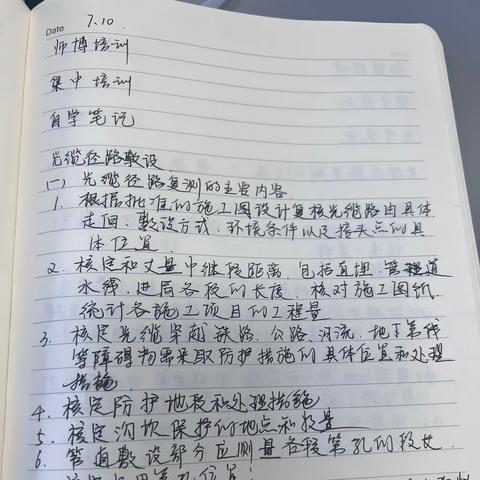 Date 7.10
师博培训
集中培训
自学笔记
光缆径路敷设
(一) 光缆径路复测的主要内容.
1. 根据批准的施工图设计复核光缆路由具体
走向、敷设方式、环境条件以及接头点的具
体位置
2. 核定和丈量中继段距离, 包括直埋、管道
水线, 进局各段的长度, 核对施工图纸,
统计各施工项目的工程量
3. 核定光缆穿越铁路、公路、河流、地下管线
等障碍物需采取防护措施的具体位置和处理
措施.
4. 核定防护地段和处理措施
5. 核定沟坎保护的地点和数量
6. 管道敷设部分应测量各段管孔的